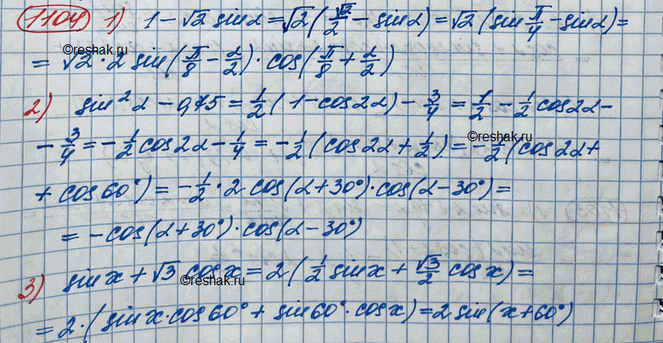 1104 1) 1 - √2 sin α = √2 (√2/2 - sin α) = √2 (sin π/4 - sin α) =
reshak.ru
= √2 · 2 sin(π/8 - α/2) · cos(π/8 + α/2)
2) sin² α - 0,75 = 1/2 (1 - cos 2α) - 3/4 = 1/2 - 1/2 cos 2α -
©reshak.ru
- 3/4 = - 1/2 cos 2α - 1/4 = - 1/2 (cos 2α + 1/2) = - 1/2 (cos 2α +
+ cos 60°) = - 1/2 · 2 cos(α + 30°) · cos(α - 30°) =
= - cos(α + 30°) · cos(α - 30°)
3) sin x + √3 cos x = 2 (1/2 sin x + √3/2 cos x) =
©reshak.ru
= 2 · (sin x · cos 60° + sin 60° · cos x) = 2 sin(x + 60°)